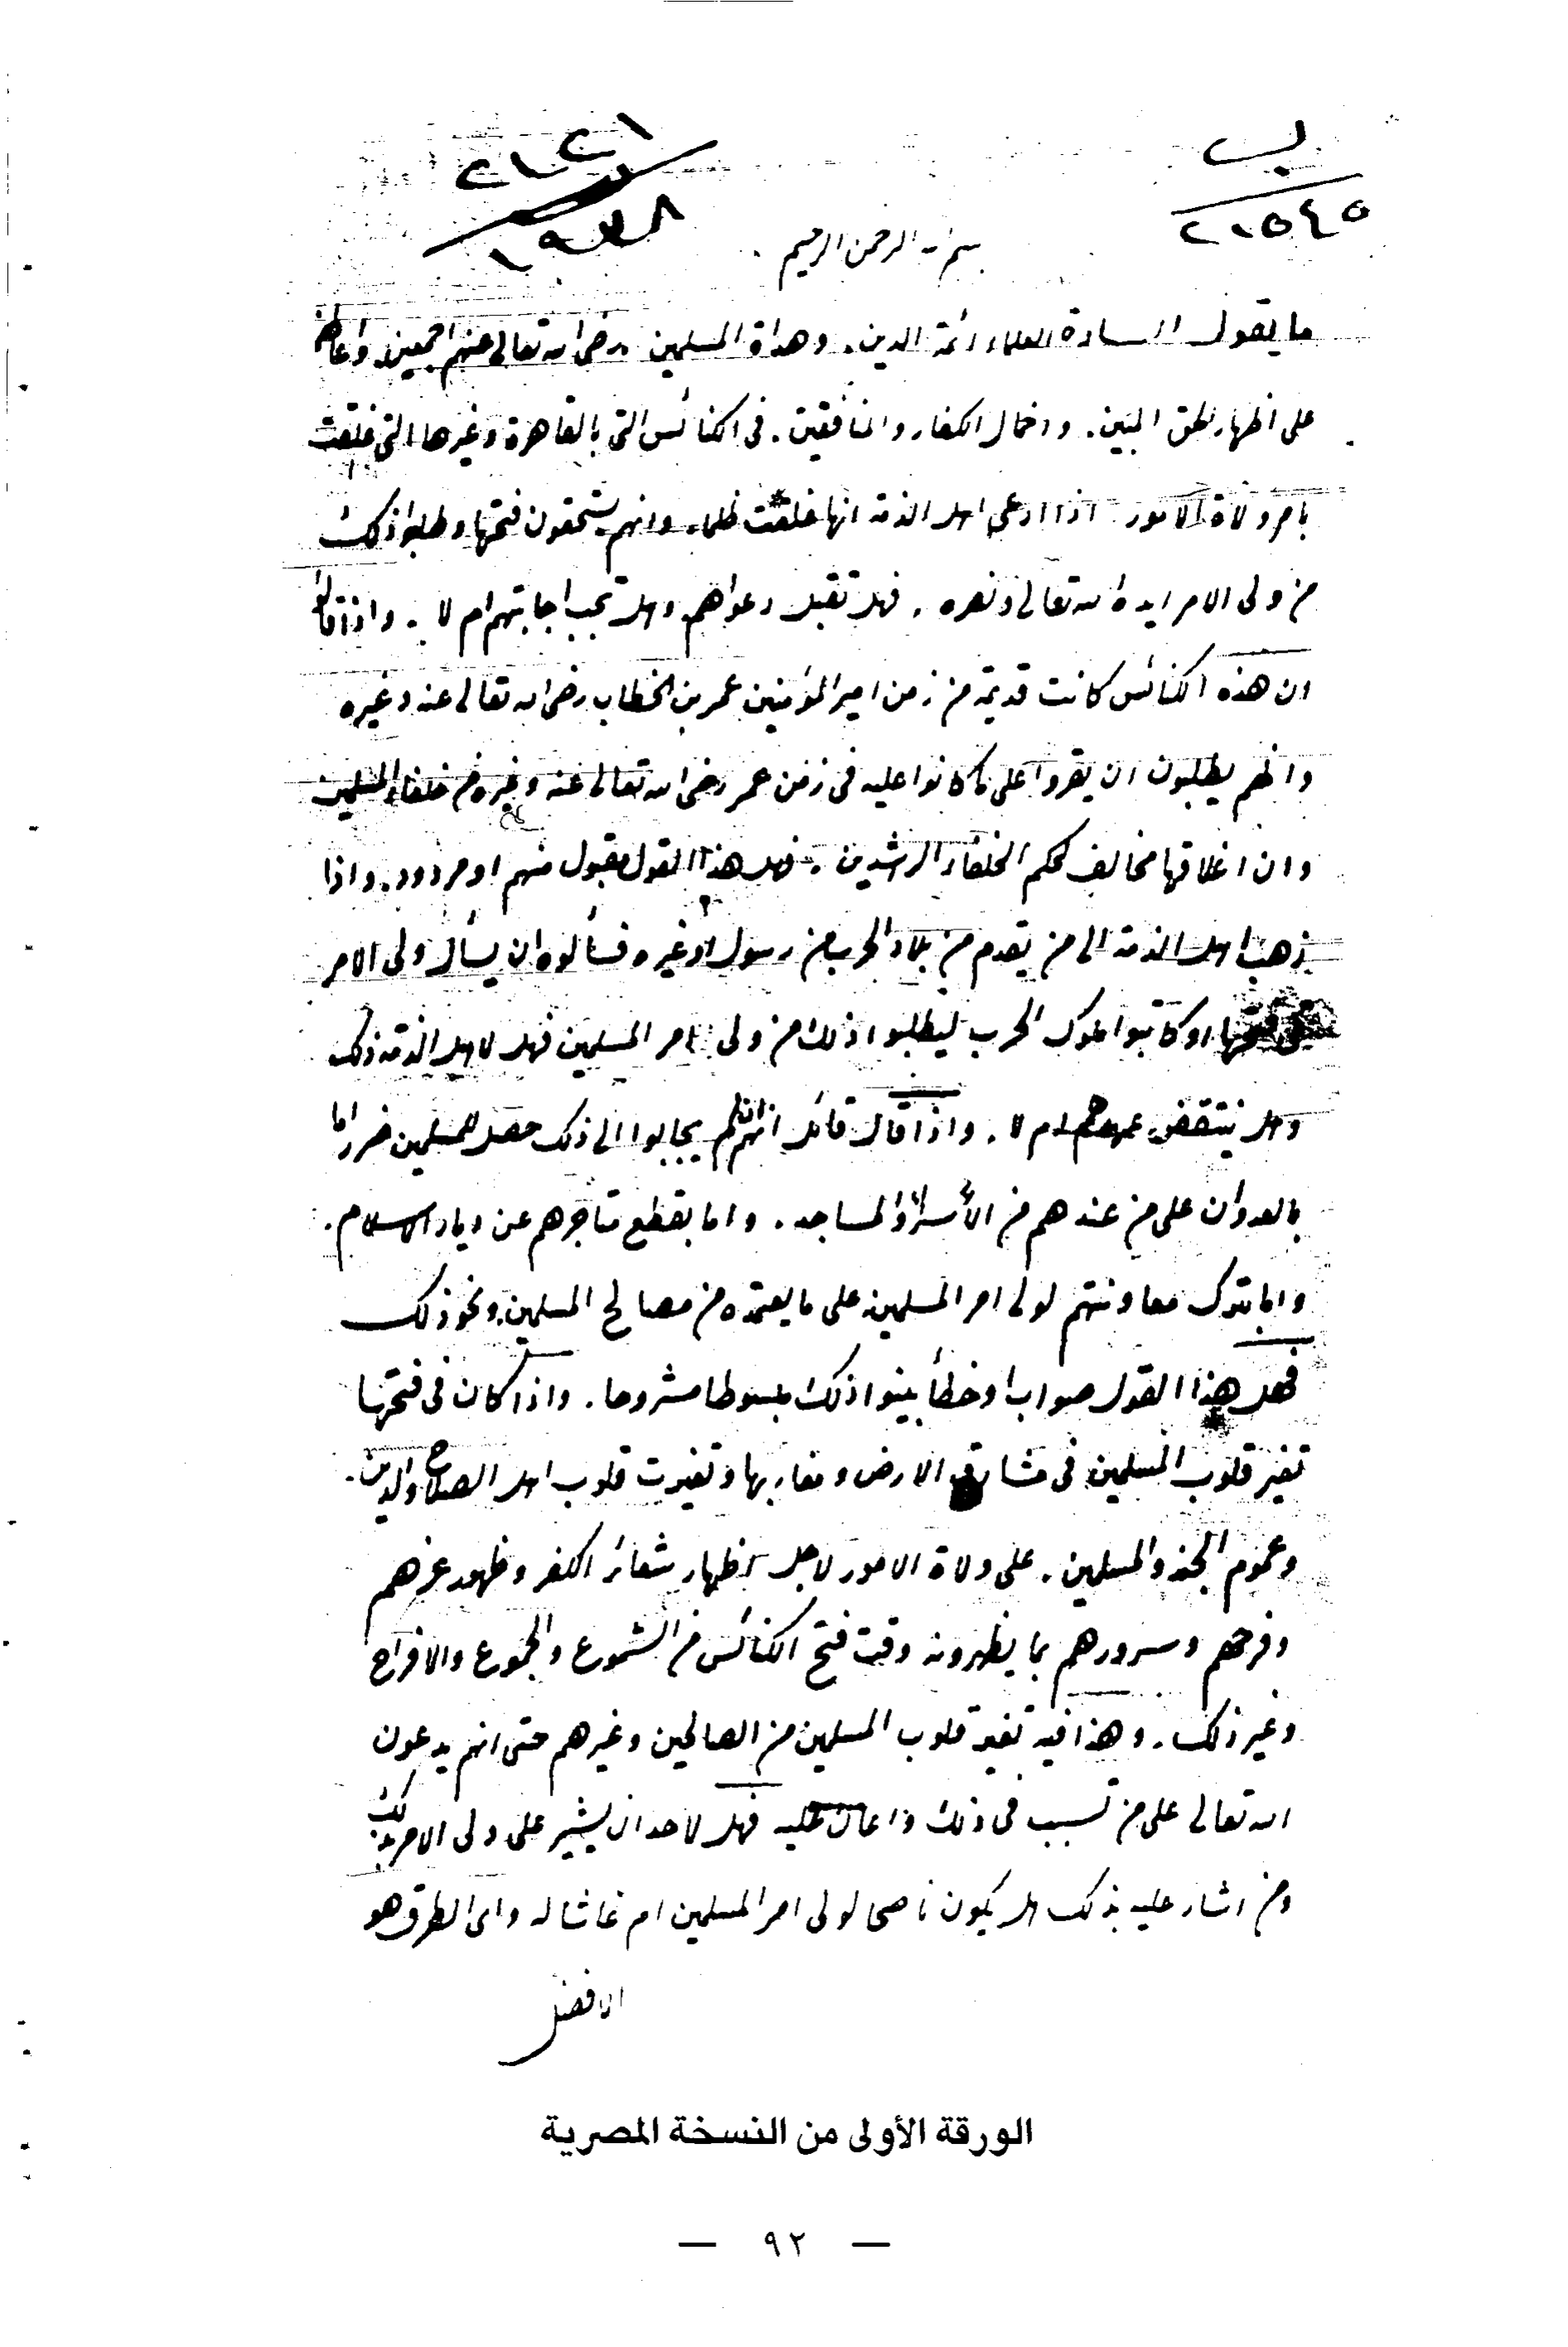 ب
٢١٥٤٥
بسم الله الرحمن الرحيم .
ما يقول السادة العلماء ائمة الدين . وهداة المسلمين . رضى الله تعالى عنهم اجمعين واعانهم
على اظهار الحق المبين . واخمال الكفار والمنافقين . فى الكنائس التى بالقاهرة وغيرها التى غلقت
بامر ولاة الامور اذا ادعى اهل الذمة انها غلقت ظلما . وانهم يستحقون فتحها وطلبوا ذلك
من ولى الامر ايده الله تعالى ونصره . فهل تقبل دعواهم وهل تجب اجابتهم ام لا . واذا قالوا
ان هذه الكنائس كانت قديمة من زمن امير المؤمنين عمر بن الخطاب رضى الله تعالى عنه وغيره
وانهم يطلبون ان يقروا على ما كانوا عليه فى زمن عمر رضى الله تعالى عنه وغيره من خلفاء المسلمين
وان اغلاقها مخالف لحكم الخلفاء الراشدين . فهل هذا القول مقبول منهم او مردود . واذا
ذهب اهل الذمة الى من يقدم من بلاد الحرب من رسول او غيره فسألوه ان يسأل ولى الامر
فى فتحها او كاتبوا ملوك الحرب ليطلبوا ذلك من ولى امر المسلمين فهل لاهل الذمة ذلك
وهل ينتقض عهدهم ام لا . واذا قال قائل انهم ان لم يجابوا الى ذلك حصل للمسلمين ضرر اما
بالعدوان على من عندهم من الأسراء والمساجد . واما بقطع متاجرهم عن ديار الاسلام .
واما بترك معاونتهم لولى امر المسلمين على ما يعتمده من مصالح المسلمين ونحو ذلك
فهل هذا القول صواب او خطأ بينوا ذلك مبسوطا مشروحا . واذا كان فى فتحها
تغير قلوب المسلمين فى مشارق الارض ومغاربها وتغيرت قلوب اهل الصلاح والدين .
وعموم الجند والمسلمين . على ولاة الامور لاجل اظهار شعائر الكفر وظهور عزهم
وفرحهم وسرورهم بما يظهرونه وقت فتح الكنائس من الشموع والجموع والافراح
وغير ذلك . وهذا فيه تغير قلوب المسلمين من الصالحين وغيرهم حتى انهم يدعون
الله تعالى على من تسبب فى ذلك واعان عليه فهل لاحد ان يشير على ولى الامر بذلك
ومن اشار عليه بذلك هل يكون ناصحا لولى امر المسلمين ام غاشا له واى الطرق هو
الافضل
الورقة الأولى من النسخة المصرية
— ٩٢ —